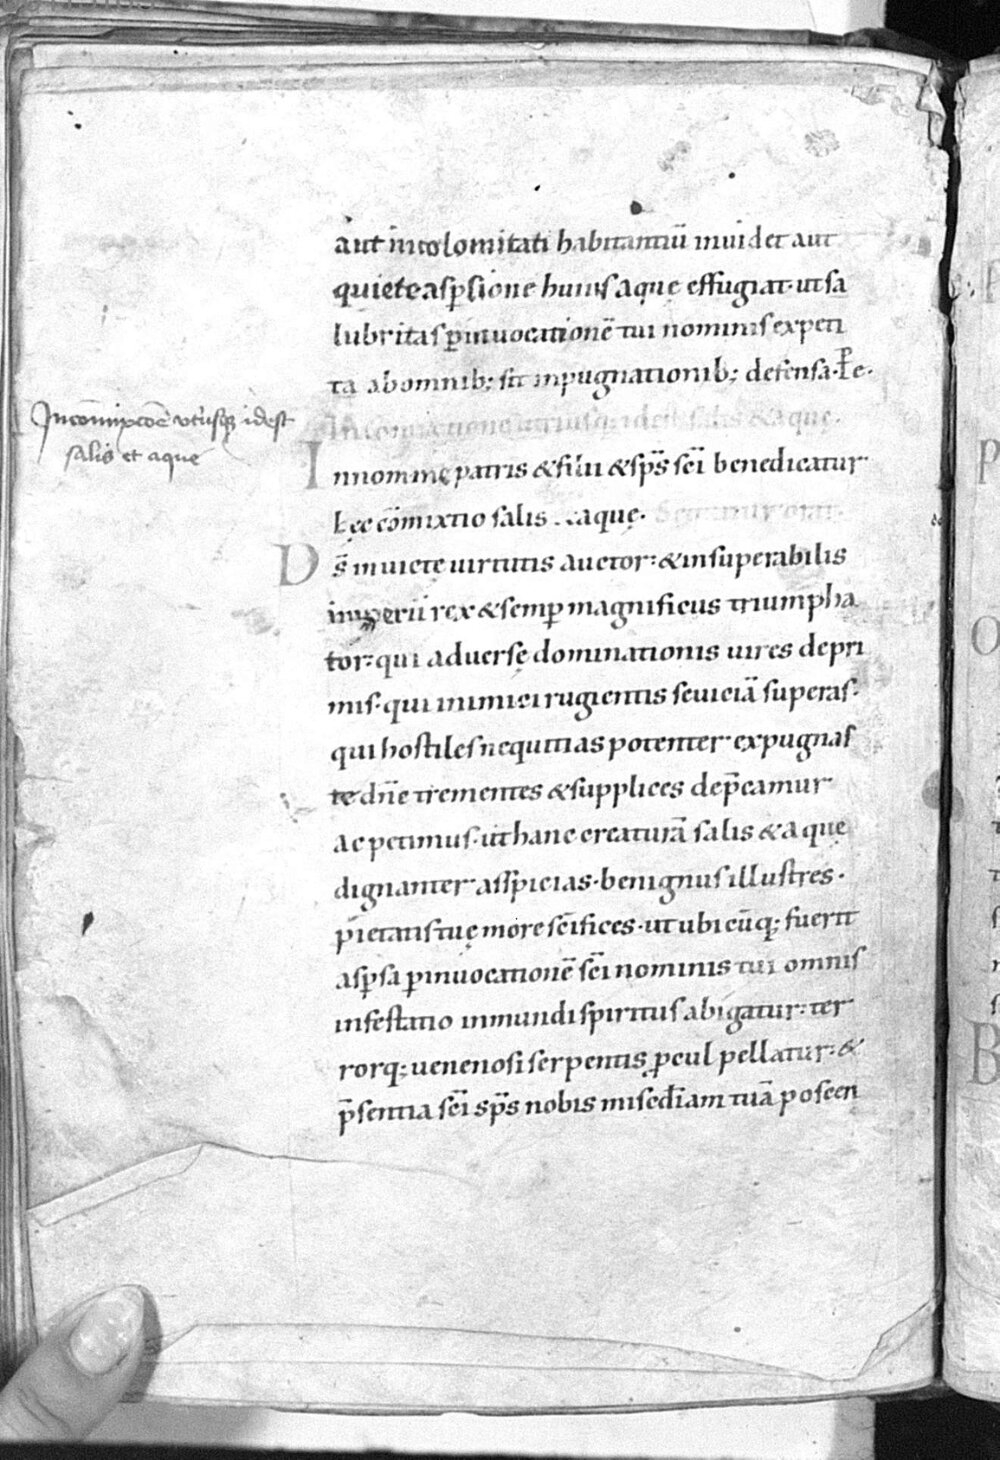 aut incolomitati habitantiū inuidet aut
quiete asꝑsione huius aquę effugiat· ut sa
lubritas ꝑ inuocationē tui nominis expeti
ta ab omnib; sit inpugnationib; defensa· P̄e·
Incōmixcōe utriusqꝫ idest
salis et aque
In comixtione utriusq; idest salis & aquę·
In nomine patris & filii & sp̄s sc̄i benedicatur
hęc cōmixtio salis & aquę· Sequitur orat·
Ds̄ inuictę uirtutis auctor: & insuperabilis
imperii rex & semꝑ magnificus triumpha
tor: qui aduersę dominationis uires depri
mis· qui inimici rugientis seuiciā superas·
qui hostiles nequitias potenter expugnas
te dn̄e trementes & supplices dep̄camur
ac petimus· ut hanc creaturā salis & aquę
dignanter asspicias· benignus illustres·
pietatis tuę more sc̄ifices· ut ubicūq; fuerit
asꝑsa ꝑ inuocationē sc̄i nominis tui omnis
infestatio inmundi spiritus abigatur: ter
rorq; uenenosi serpentis ꝓcul pellatur: &
p̄sentia sc̄i sp̄s nobis misedīam tuā poscen